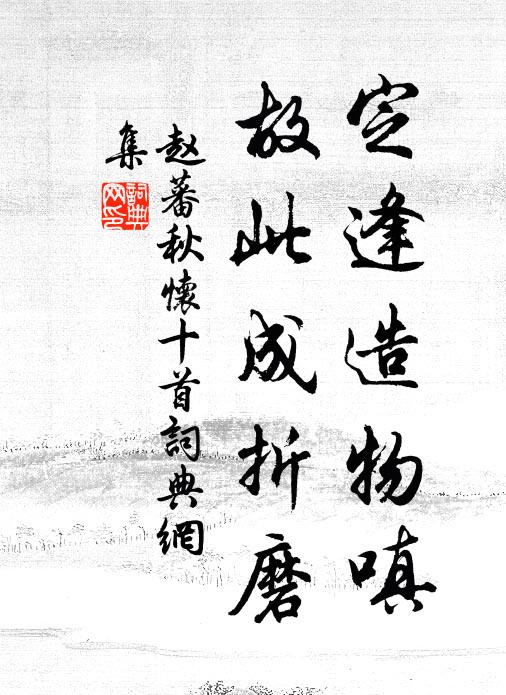 定逢造物嗔
故此成折磨
赵蕃秋懷十首詞典網
集
詞典
网印